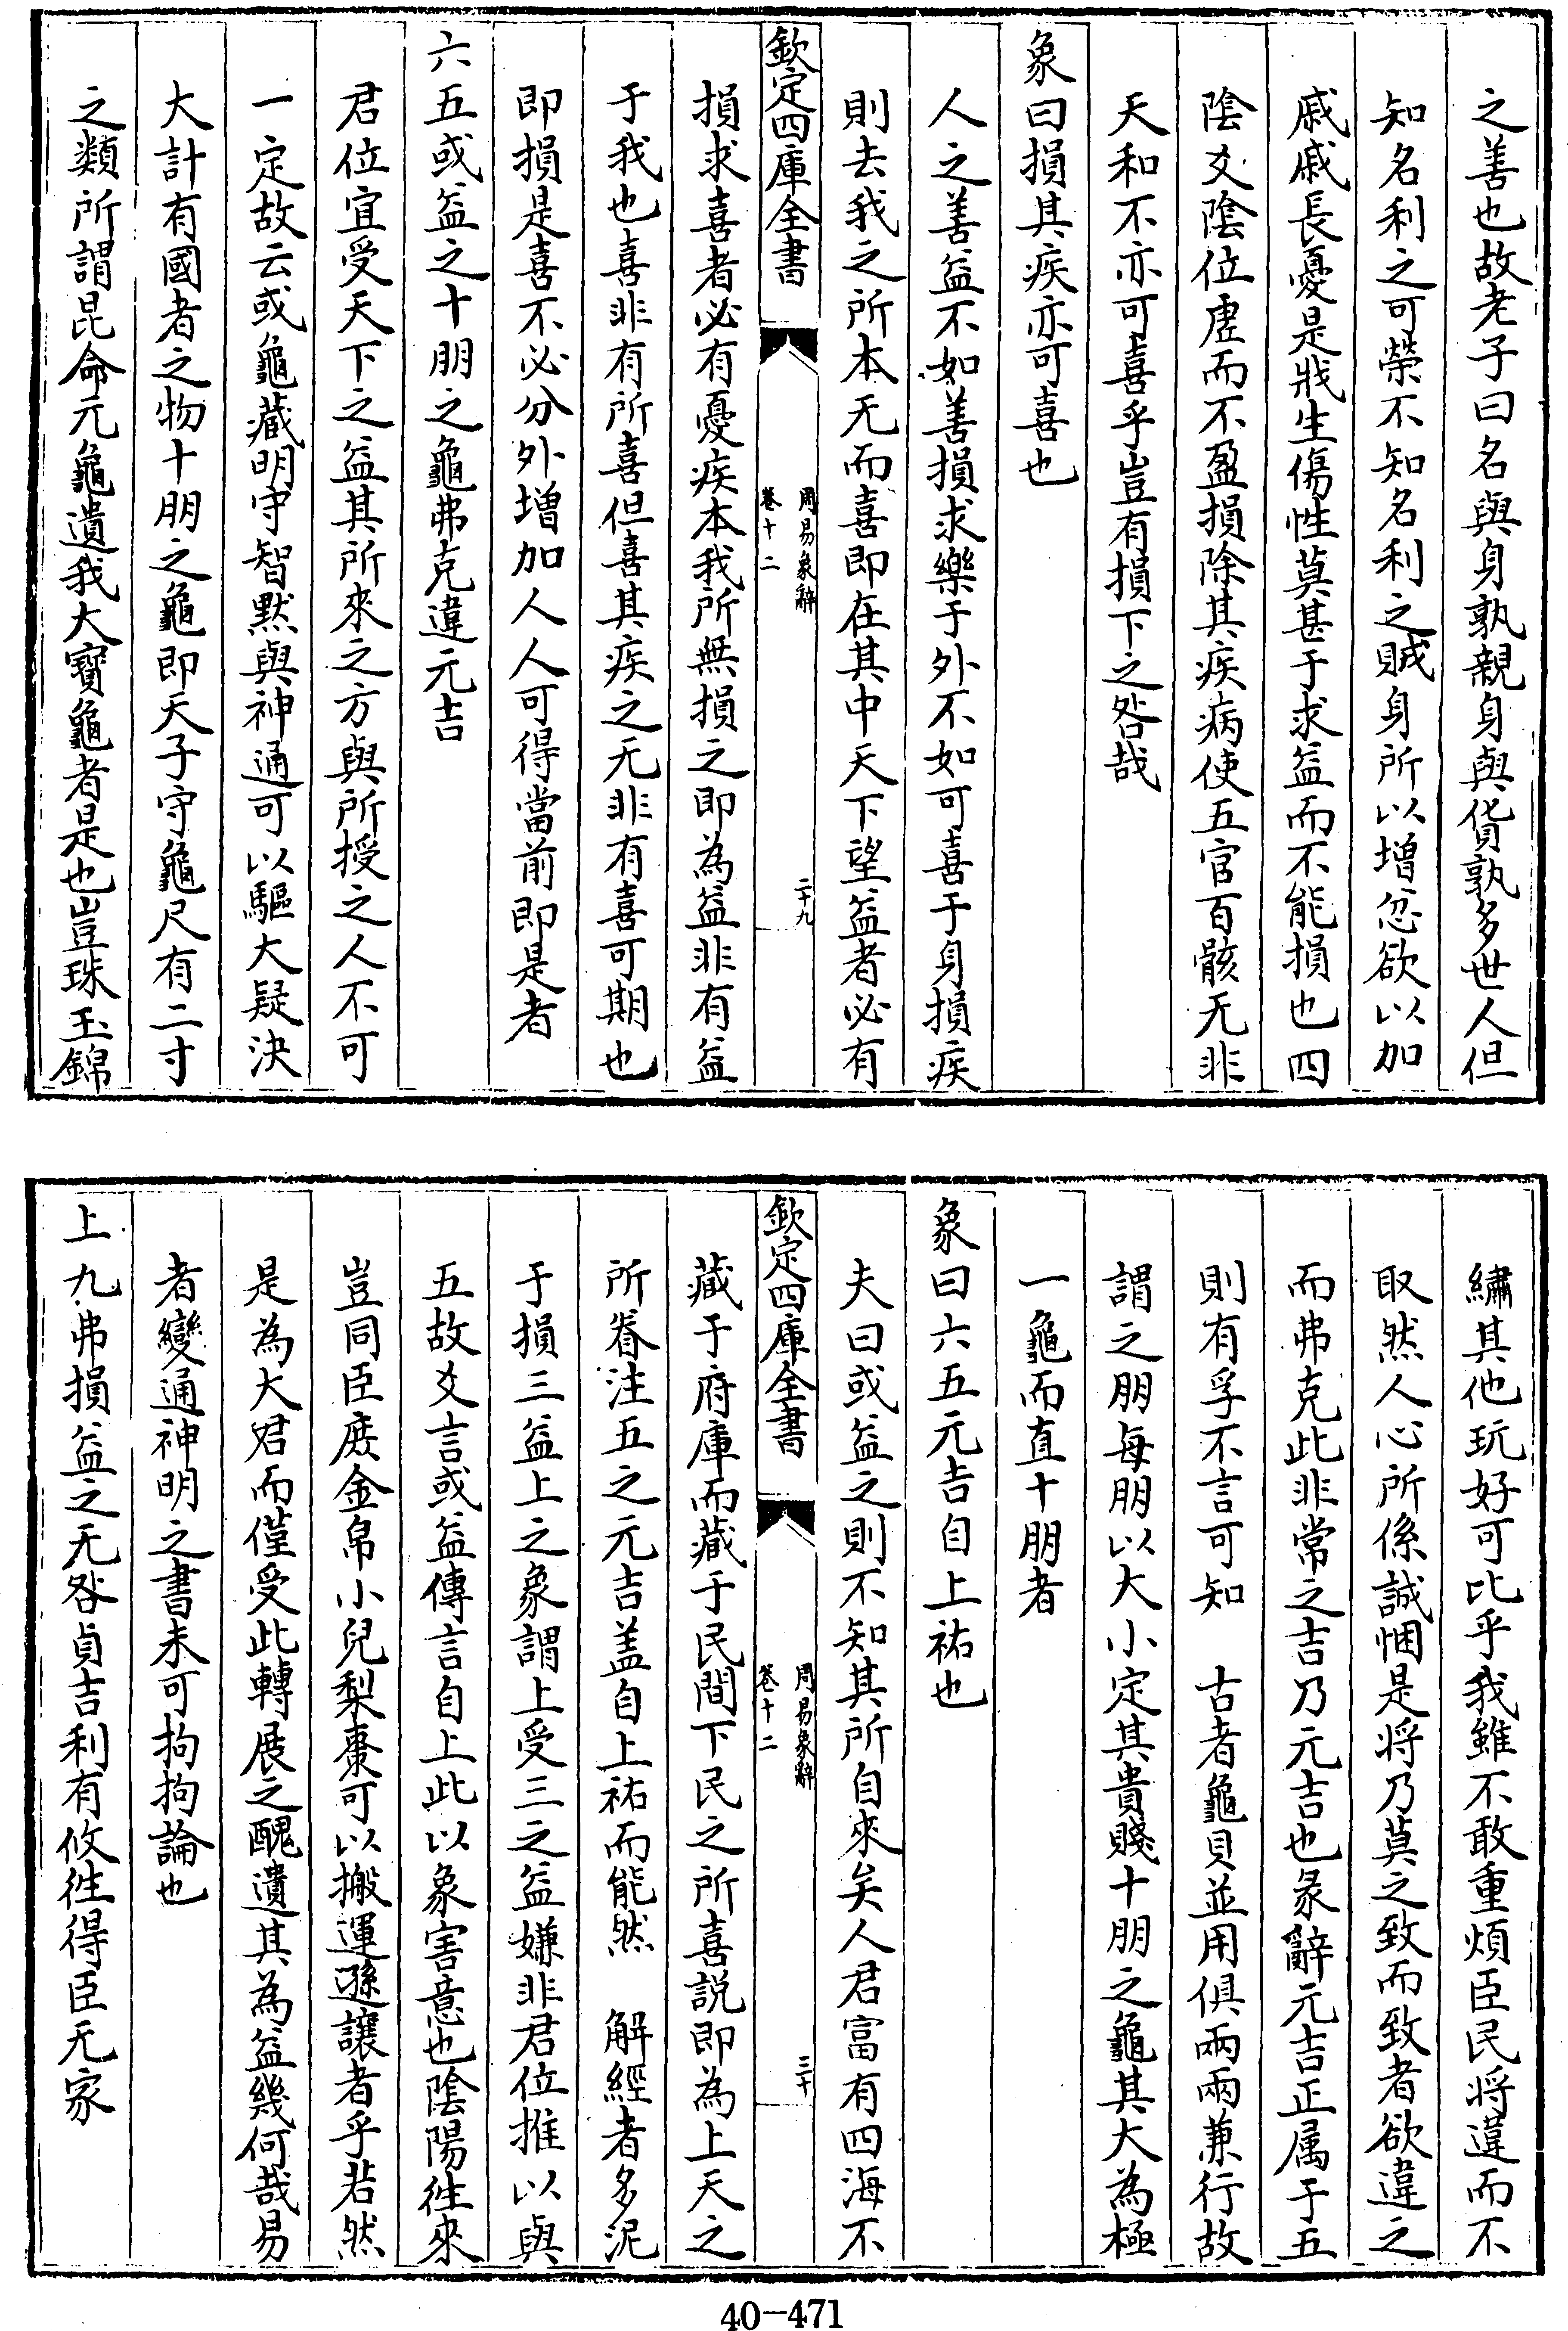 之善也故老子曰名與身孰親身與貨孰多世人但
知名利之可榮不知名利之賊身所以增忿欲以加
戚戚長憂是戕生傷性莫甚于求益而不能損也四
陰爻陰位虛而不盈損除其疾病使五官百骸无非
天和不亦可喜乎豈有損下之咎哉
象曰損其疾亦可喜也
人之善益不如善損求樂于外不如可喜于身損疾
則去我之所本无而喜即在其中天下望益者必有
欽定四庫全書
周易象辭
卷十二
二十九
損求喜者必有憂疾本我所無損之即為益非有益
于我也喜非有所喜但喜其疾之无非有喜可期也
即損是喜不必分外增加人人可得當前即是者
六五或益之十朋之龜弗克違元吉
君位宜受天下之益其所來之方與所授之人不可
一定故云或龜藏明守智黙與神通可以驅大疑決
大計有國者之物十朋之龜即天子守龜尺有二寸
之類所謂昆命元龜遺我大寶龜者是也豈珠玉錦
繡其他玩好可比乎我雖不敢重煩臣民將違而不
取然人心所係誠悃是將乃莫之致而致者欲違之
而弗克此非常之吉乃元吉也彖辭元吉正属于五
則有孚不言可知　古者龜貝並用俱兩兩兼行故
謂之朋每朋以大小定其貴賤十朋之龜其大為極
一龜而直十朋者
象曰六五元吉自上祐也
夫曰或益之則不知其所自來矣人君富有四海不
欽定四庫全書
周易象辭
卷十二
三十
藏于府庫而藏于民間下民之所喜説即為上天之
所眷注五之元吉盖自上祐而能然　解經者多泥
于損三益上之象謂上受三之益嫌非君位推以與
五故爻言或益傳言自上此以象害意也陰陽徃來
豈同臣庶金帛小兒梨棗可以搬運遜讓者乎若然
是為大君而僅受此轉展之醜遺其為益幾何哉易
者變通神明之書未可拘拘論也
上九弗損益之无咎貞吉利有攸徃得臣无家
40-471